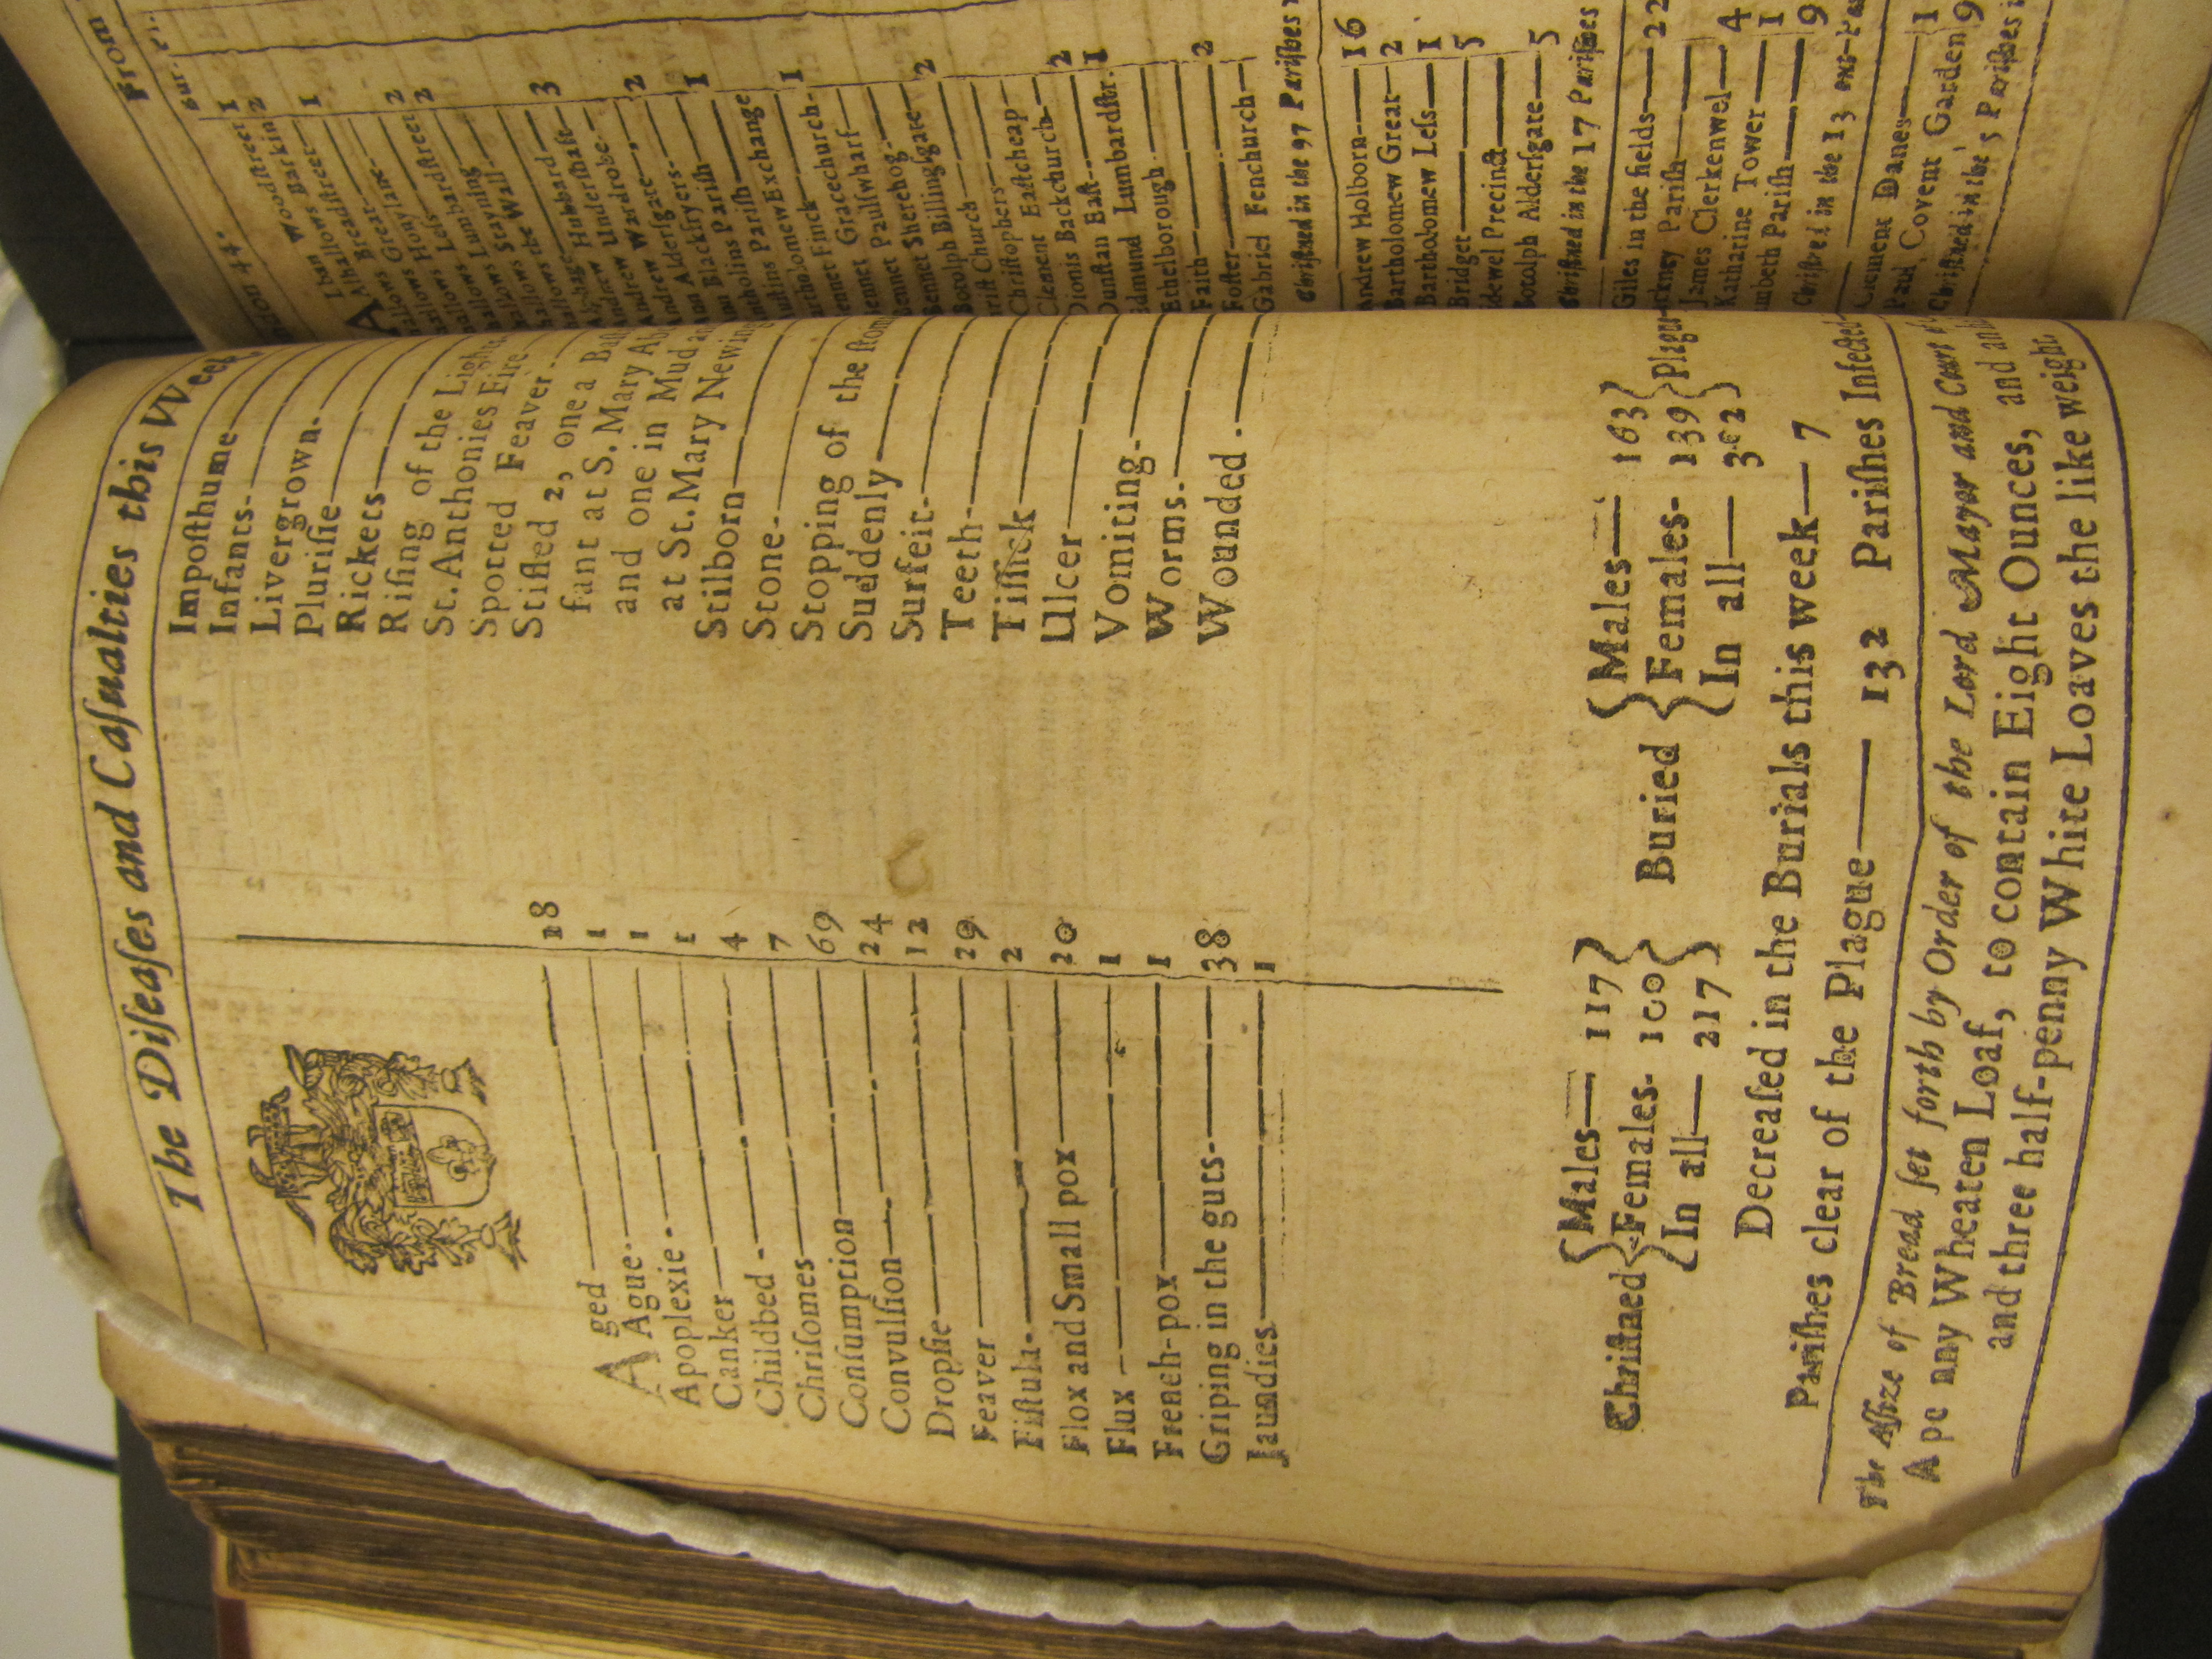 The Diſeaſes and Caſualties this Week
Aged 18
Ague 1
Apoplexie 1
Canker 1
Childbed 4
Chriſomes 7
Conſumption 69
Convulſion 24
Dropſie 12
Feaver 29
Fiſtula 2
Flox and Small pox 20
Flux 1
French-pox 1
Griping in the guts 38
Jaundies 1
Impoſthume
Infants
Livergrown
Pluriſie
Rickets
Riſing of the
St. Anthonies Fire
Spotted Feaver
Stifled 2, one a
fant at S. Mary
and one in Mud
at St. Mary
Stilborn
Stone
Stopping of the
Suddenly
Surfeit
Teeth
Tiſſick
Ulcer
Vomiting
Worms
Wounded
Chriſtned { Males 117 Females 100 In all 217 }
Buried { Males 163 Females 139 In all 302 }
Decreaſed in the Burials this week 7
Pariſhes clear of the Plague 132 Pariſhes Infected
The Aſſize of Bread ſet forth by Order of the Lord Mayor and Court
A penny Wheaten Loaf, to contain Eight Ounces, and
and three half-penny White Loaves the like weight
From
Woodſtreet 1
Barkin 2
Breadſtreet 1
Great
Honylane 2
Leſs
Lumbardſtreet 2
Stayning
the Wall
Hubbard 3
Underſhaft
Wardrobe 2
Alderſgate
Blackfryers 1
Pariſh
Pariſh
Exchange 1
Finck
Gracechurch
Paulſwharf
Bennet Sherehog
Botolph Billingſgate 2
Church
Chriſtophers
Clement Eaſtcheap
Dionis Backchurch 2
Dunſtan Eaſt 1
Edmund Lumbardſtr.
Ethelborough
Faith
Foſter 2
Gabriel Fenchurch
Chriſtned in the 97 Pariſhes
Andrew Holborn 16
Bartholomew Great 2
Bartholomew Leſs 1
Bridget 5
Precinct
Botolph Alderſgate 5
Chriſtned in the 17 Pariſhes
Giles in the fields 22
Pariſh
James Clerkenwel 4
Katharine Tower 1
Pariſh 9
Chriſtned in the 13
Clement Danes 1
Paul Covent Garden 9
Chriſtned in the 5 Pariſhes